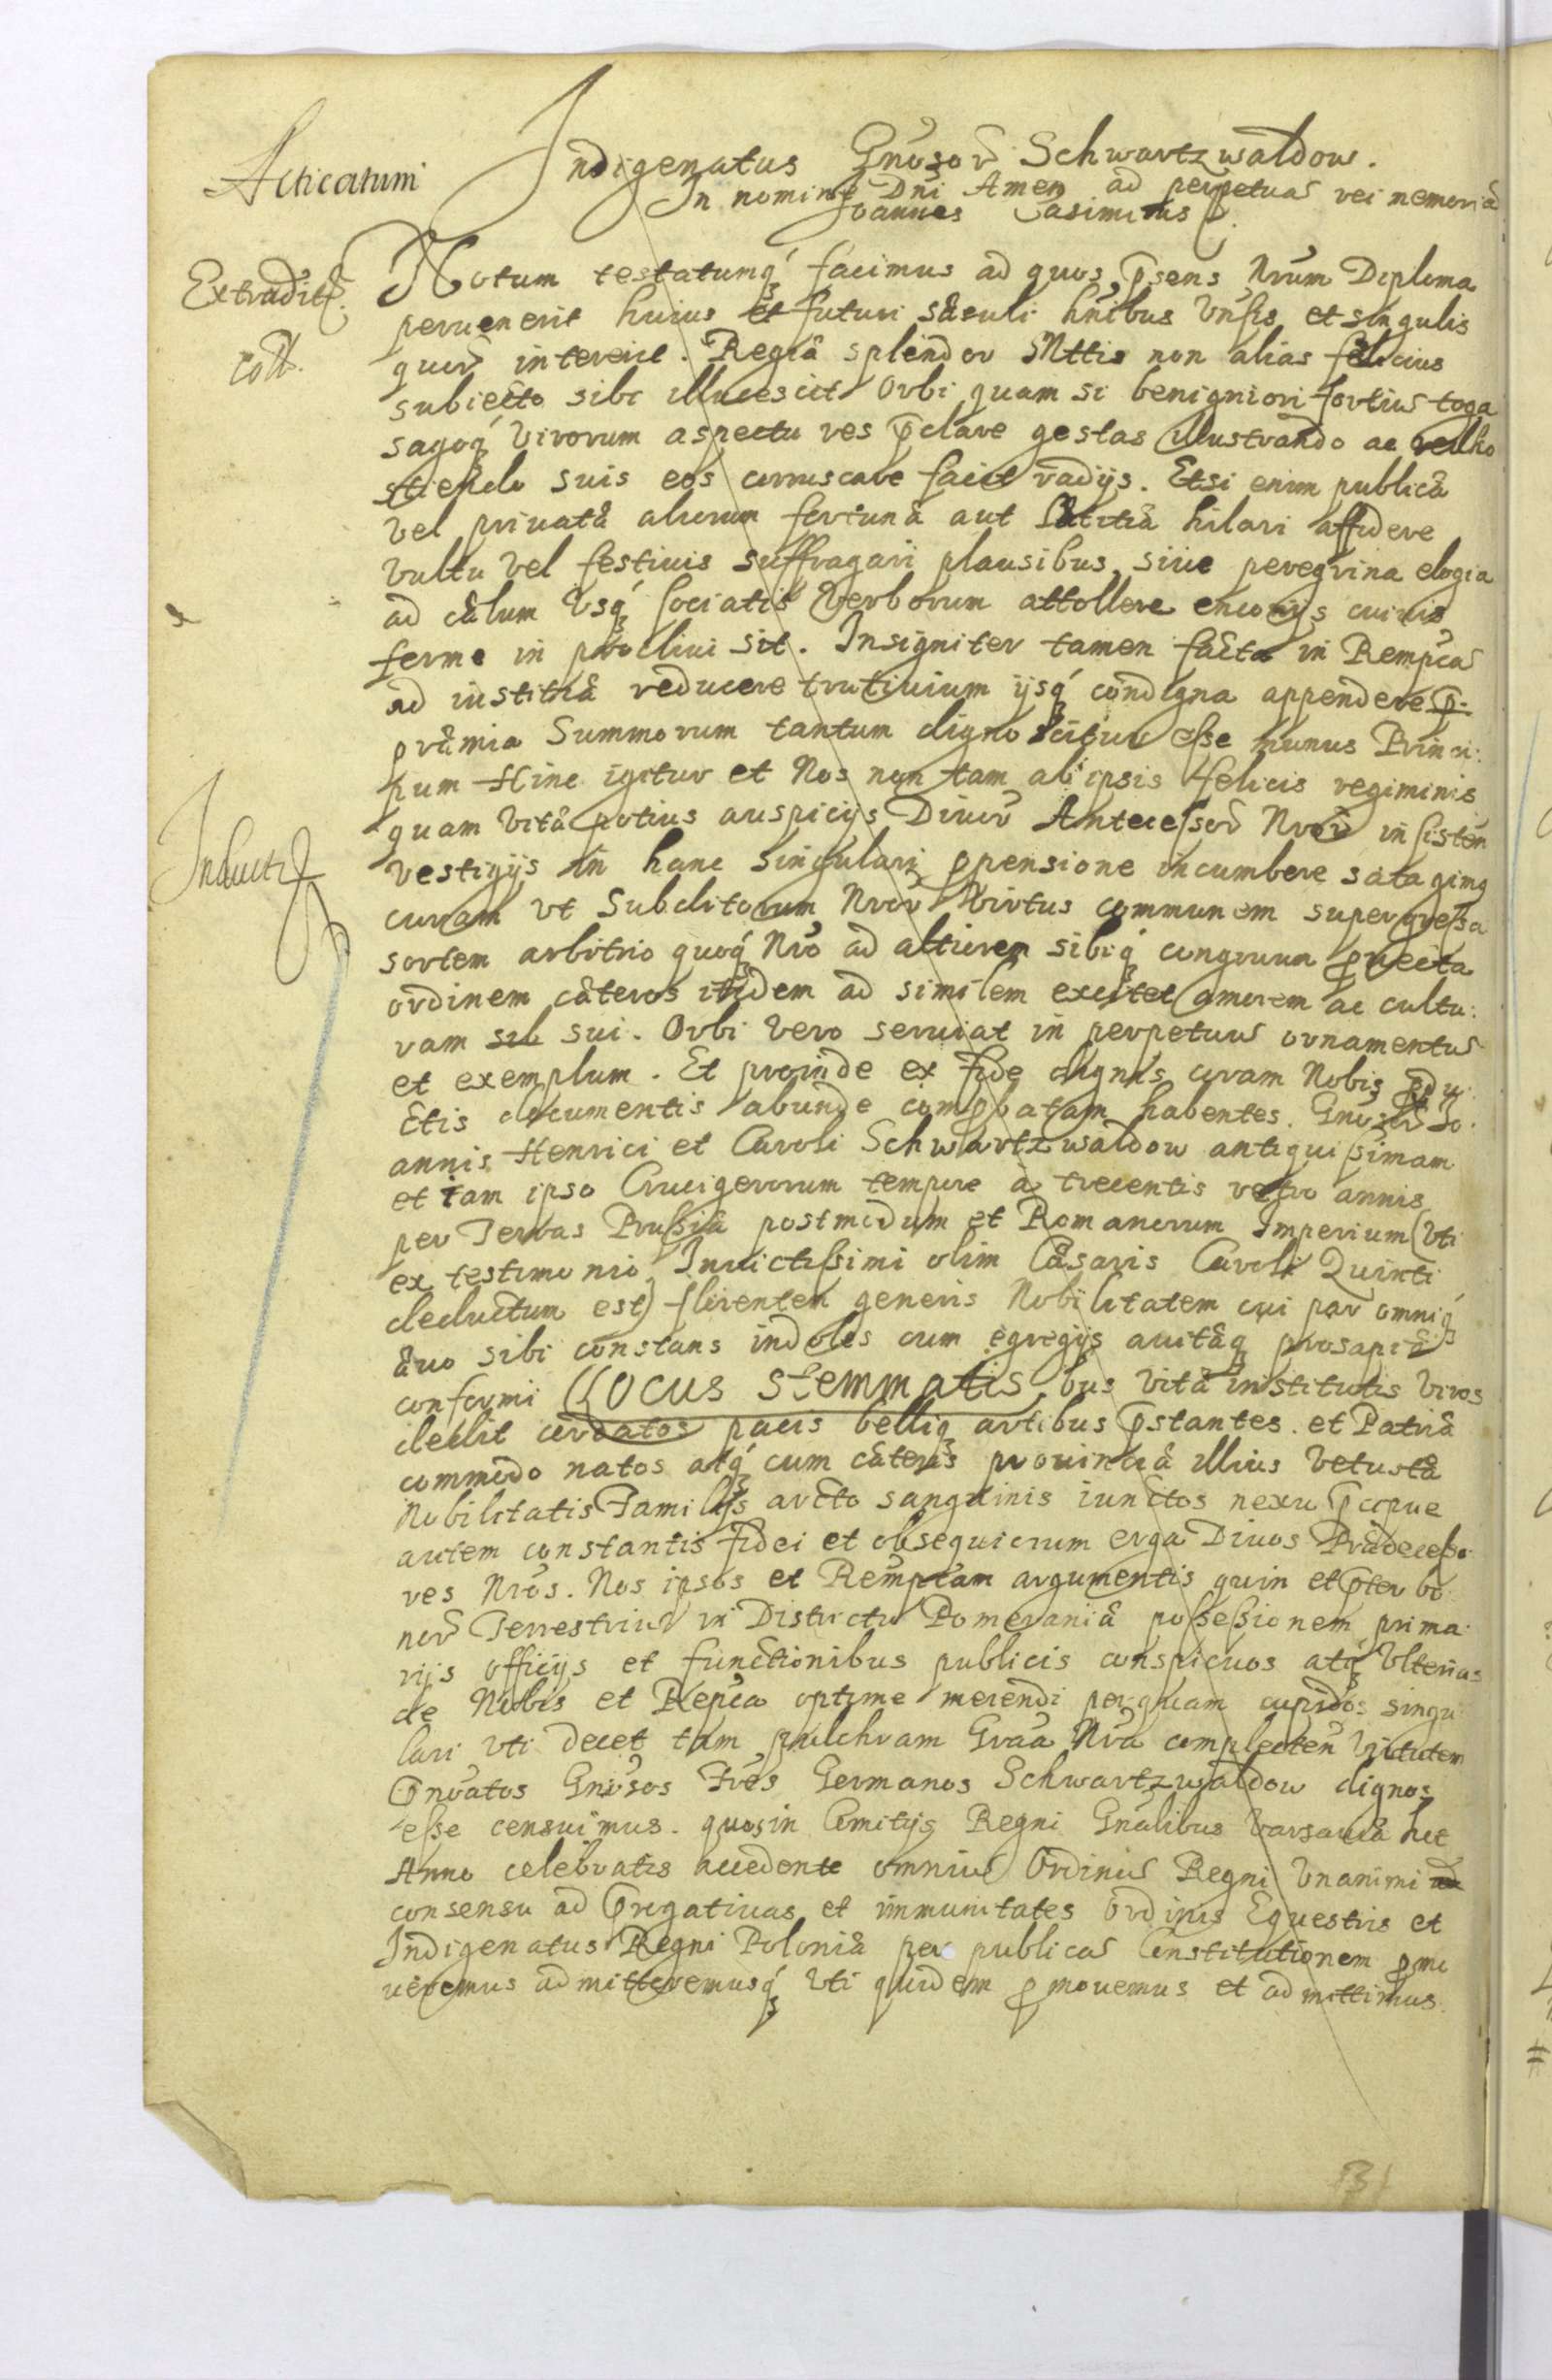 Acticatum
Indigenatus Gnosoȓ Schwartzwaldow.
In nomine Dni Amen ad perpetuā rei memoriā
Joannes Casimirus
Extradit.
Notum testatumq́ꝫ facimus ad quos p̄sens Nrum Diploma
peruenerit huius et futuri sæculi hnibus Vnsis et singulis
coll.
quorū intererit. Regiæ splendor Mttis non alias felicius
subiecto sibi illucescit Orbi quam si benigniori fortius toga
sagoq́ꝫ Virorum aspectu res p̄clare gestas illustrando ac
suis eos corruscare facit radijs. Etsi enim publicâ
Vel priuatâ aliorum fortunâ aut lætitiâ hilari assidere
Vultu Vel festiuis suffragari plausibus, siue peregrina elogia
ad cælum Vsq́ꝫ sociatis Verborum attollere encomijs cuiuis
ferme in procliui sit. Insigniter tamen facta in Rempcā
ad iustitiæ reducere trutinium ijsq́ꝫ condigna appendere p̄-
præmia Summorum tantum dignoscitur esse munus Princi:
pum Hinc igitur et Nos non tam ab ipsis felicis regiminis
quam Vitæ potius auspicijs Diuorū Antecessorū Nrorū insisten
Inducti
vestigijs in hanc singulari ꝓpensione incumbere satagimꝫ
curam vt Subditorum Nrorū Virtus communem supergressa
sortem arbitrio quoq́ꝫ Nro ad altiorem sibiq́ꝫ congruum ꝓuecta
ordinem cæteros itidem ad similem excitet amorem ac cultu:
ram sib sui. Orbi vero seruiat in perpetuū ornamentū
et exemplum. Et proinde ex fide dignis coram Nobis ꝓdu
ctis documentis abunde comꝓbatam habentes. Gnosorū Jo:
annis Henrici et Caroli Schwartzwaldow antiquissimam
et iam ipso Crucigerorum tempore a trecentis retro annis
per Terras Prussiæ postmodum et Romanorum Imperium (Vti
ex testimonio Inuictissimi olim Cæsaris Caroli Quinti
deductum est) florentem generis Nobilitatem cui par omniq́ꝫ
æuo sibi constans indoles cum egregijs auitæqꝫ prosapiæ
conformi (Locus Stemmatis) bus Vitæ institutis Viros
dedit cordatos pacis belliqꝫ artibus p̄stantes. et Patriæ
commodo natos atq́ꝫ cum cæteris prouinciæ illius Vetustæ
Nobilitatis Familijs arcto sanguinis iunctos nexu p̄cipue
autem constantis fidei et obsequiorum erga Diuos Prædecesso
res Nros. Nos ipsos et Rempcam argumentis quin et p̄ter bo
norū Terrestriū in Districtu Pomeraniæ possessionem prima
rijs officijs et functionibus publicis conspicuos atq́ꝫ Vlterius
de Nobis et Repca optime merendi perquam cupidos singu
lari vti decet tam pulchram Graa Nra complecten Virtutem
p̄noatos Gnosos Fres Germanos Schwartzwaldow dignos
esse censuimus. quos in Comitijs Regni Gnalibus Varsauiæ hoc
Anno celebratis accedente omniū Ordinū Regni Vnanimi ad
consensu ad p̄rogatiuas et immunitates Ordinis Equestris et
Indigenatus Regni Poloniæ per publicā Constitutionem ꝓmo
ueremus admitteremusq́ꝫ Vti quidem ꝓmouemus et admittimus.